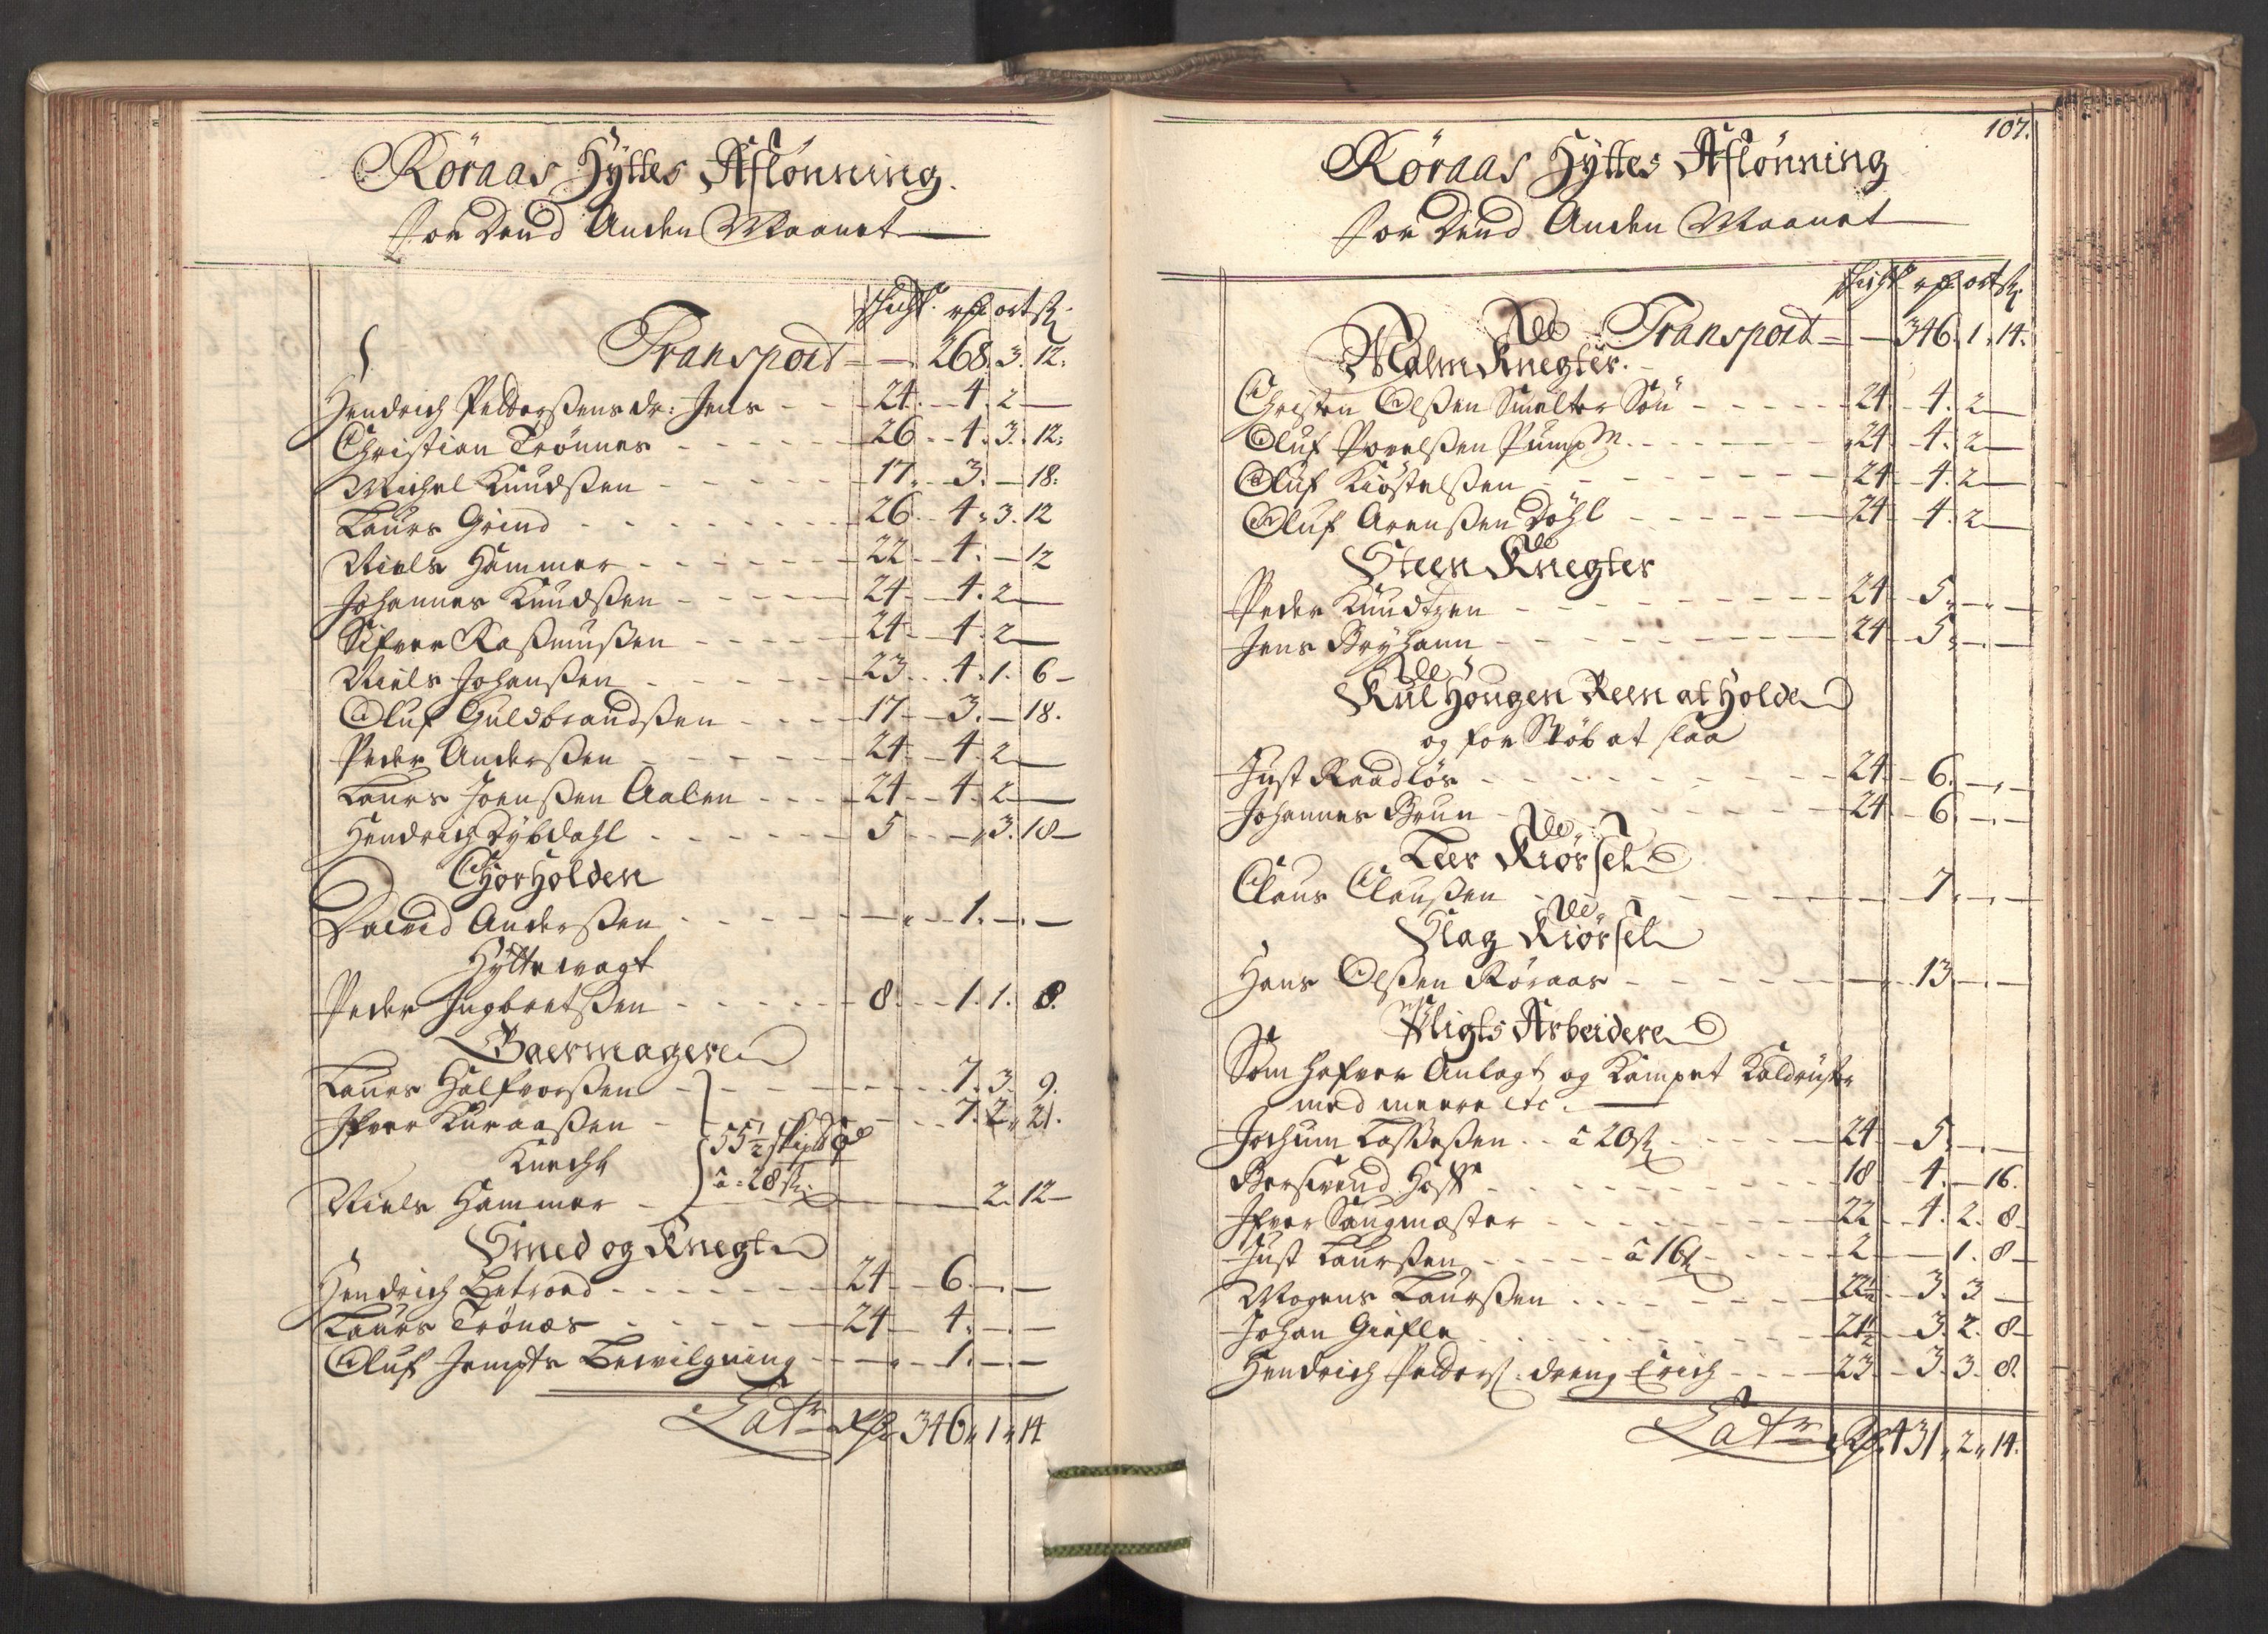 Röraas Hÿttes Aflönning.
for Dend Anden Maanet
schicht. rd. ort s.
Transport - - 268. 3. 12.
Hendrich Peddersens dr: Jens - - 24. - 4. 2 -
Christian Trönnes - - 26 - - 4. 3. 12.
Michel Knudsen - - 17. - 3. - 18.
Laurs Grind - - 26 - - 4. 3. 12
Niels Hammer - - 22 - - 4. - 12
Johannes Knudsen - - 24 - - 4. 2 -
Sifver Rasmusen - - 24 - - 4. 2 -
Niels Johansen - - 23 - - 4. 1. 6 -
Oluf Guldbrandsen - - 17 - - 3. - 18.
Peder Andersen - - 24 - - 4. 2 -
Laurs Joensen Aalen - - 24 - - 4. 2 -
Hendrich Dybdahl - - 5 - - - 3. 18 -
Chorholden
David Andersen - - 1. - . -
Hÿttevagt
Peder Ingbretsen - - 8. - - 1. 1. 8.
Gaermagere
Laurs Halfvorsen - - 7. 3. 9.
Ifver Kuraasen - - 7. 2. 21.
Knecht 55½ skipd
Niels Hammer - à 28 s. - 2. 12 -
Smed og Knegt
Hendrich - - 24 - 6. - . -
Laurs Trönæs - - 24 - 4. - . -
Oluf Jempts Bevilgning - - 1. - . -
Lat. Rd. 346. 1. 14
107.
Röraas Hÿttes Aflönning
for Dend Anden Maanet
schicht. rd. ort s.
Transport - - 346. 1. 14.
Malm Knegter.
Christen Olsen Smelter Sön - - 24 - 4. 2 -
Oluf Povelsen Pump M. - - 24 - 4. 2 -
Oluf Kiöstelsen - - 24 - 4. 2 -
Oluf Arensen Döhl - - 24 - 4. 2 -
Steen Knegter
Peder Knudtzen - - 24 - 5. - . -
Jens Bryhann - - 24 - 5. - . -
Kul Hougen Reen at Holde
og for Stöb at slaa
Just Raadlös - - 24 - 6. - . -
Johannes Brun - - 24 - 6. - . -
Leer Kiörsel
Claus Clausen - - 7. - . -
Slag Kiörsel
Hans Olsen Röraas - - 13. - . -
Pligts Arbeidere
Som hafver Anlagt og Kampet Kaldröster
med meere etc.
Jochum Lassesen - - à 20 s. - - 24 - 5. - . -
Hoff - - 18 - 4. - 16.
Ifver Saugmester - - 22 - 4. 2. 8 -
Just Laursen - - à 16 s. - - 2 - - 1. 8 -
Mogens Laursen - - 22½ - 3. 3 -
Johan Giesle - - 21½ - 3. 2. 8 -
Hendrich Peders. dreng Erich - - 23 - 3. 3. 8.
Lat. Rd. 431. 2. 14.